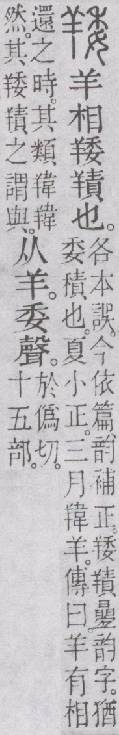 䍴
羊相䍴𦎸也。
各本誤。今依篇韵補正。䍴𦎸曡韵字。猶
委積也。夏小正。三月䍷羊。傳曰。羊有相
還之時。其類䍷䍷
然。其䍴𦎸之謂與。
从羊。委聲。
於僞切。
十五部。